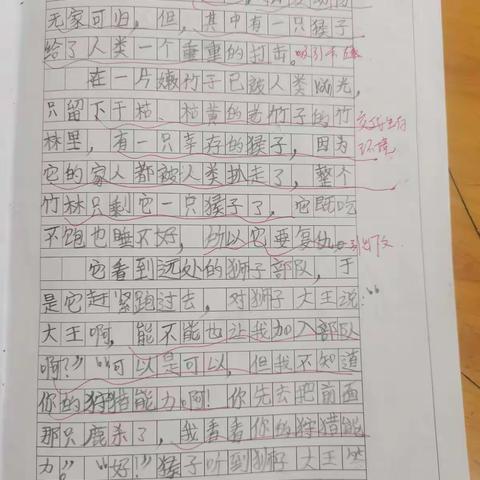 无家可归，但，其中有一只猴子
给了人类一个重重的打击。吸引卡住
在一片嫩竹子已被人类砍光，
只留下干枯、枯黄的老竹子的竹
林里，有一只幸存的猴子，因为
交待生存
环境
它的家人都被人类抓走了，整个
竹林只剩它一只猴子了，它既吃
不饱也睡不好，所以它要复仇。引出下文
它看到远处的狮子部队，于
是它赶紧跑过去，对狮子大王说：“
大王啊，能不能也让我加入部队
啊？”“可以是可以，但我不知道
你的狩猎能力啊！你先去把前面
那只鹿杀了，我看看你的狩猎能
力。”“好！”猴子听到狮子大王